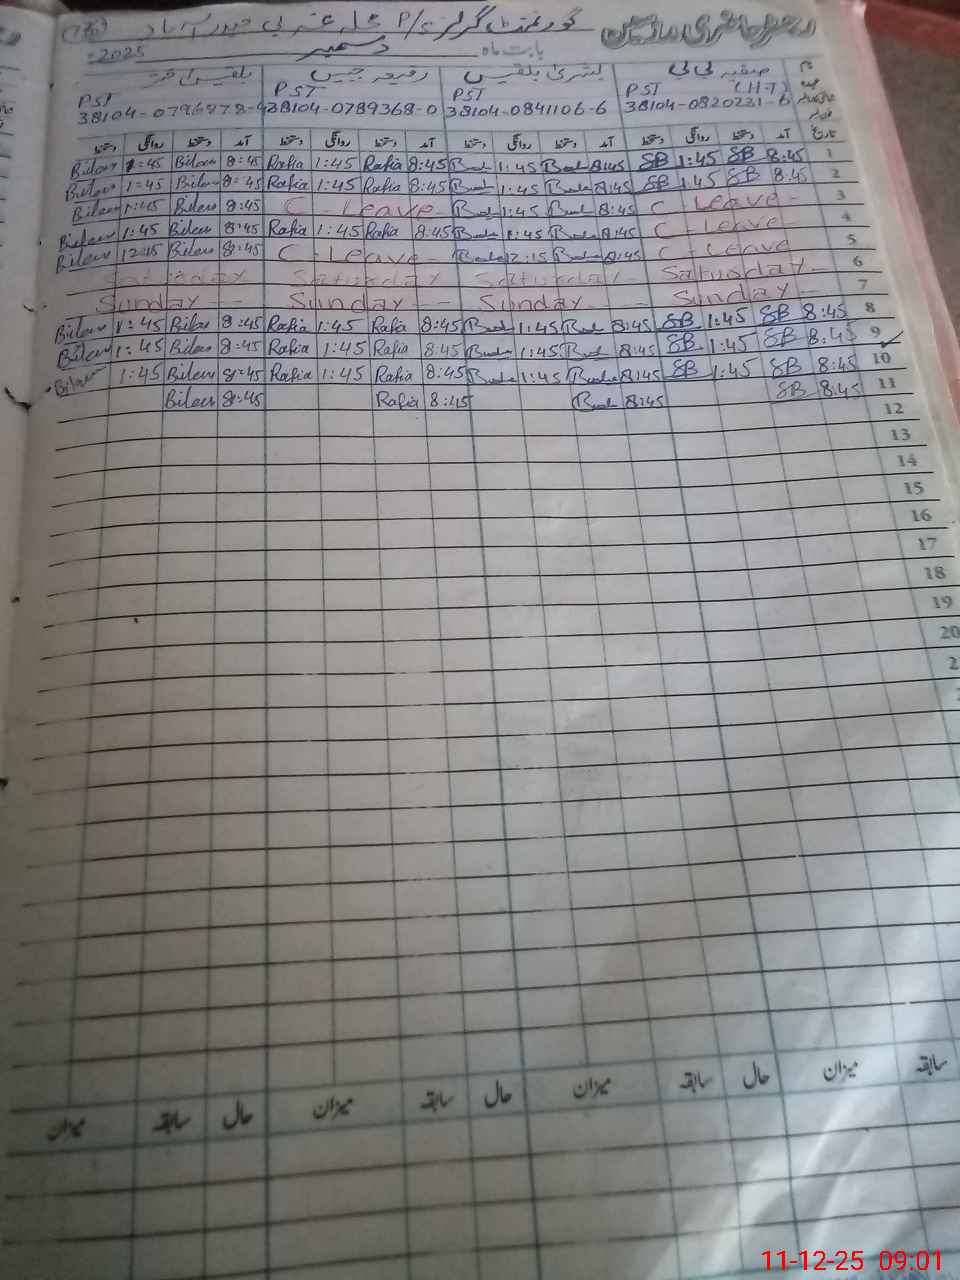 رجسٹر حاضری مدرسین گورنمنٹ گرلز P/S محلہ غربی حیدرآباد
بابت ماہ دسمبر 2025
نام صفیہ بی بی بشریٰ بلقیس رفیعہ جبیں بلقیس اختر
عہدہ PST (H.T) PST PST PST
38104-0820231-6 38104-0841106-6 38104-0789368-0 38104-0796878-9
تاریخ آمد دستخط روانگی دستخط آمد دستخط روانگی دستخط آمد دستخط روانگی دستخط آمد دستخط روانگی دستخط
1 8:45 SB 1:45 SB 8:45 1:45 8:45 Rafia 1:45 Rafia 8:45 Bilour 1:45 Bilour
2 8:45 SB 1:45 SB 8:45 1:45 8:45 Rafia 1:45 Rafia 8:45 Bilour 1:45 Bilour
3 C - Leave - 8:45 1:45 C - Leave - 8:45 Bilour 1:45 Bilour
4 C - Leave 8:45 1:45 8:45 Rafia 1:45 Rafia 8:45 Bilour 1:45 Bilour
5 C - Leave 8:45 12:15 C - Leave - 8:45 Bilour 12:15 Bilour
6 Saturday - Saturday Saturday Saturday
7 Sunday - Sunday - Sunday - Sunday -
8 8:45 SB 1:45 SB 8:45 1:45 8:45 Rafia 1:45 Rafia 8:45 Bilour 1:45 Bilour
9 8:45 SB 1:45 SB 8:45 1:45 8:45 Rafia 1:45 Rafia 8:45 Bilour 1:45 Bilour
10 8:45 SB 1:45 SB 8:45 1:45 8:45 Rafia 1:45 Rafia 8:45 Bilour 1:45 Bilour
11 8:45 SB 8:45 8:45 Rafia 8:45 Bilour
12
13
14
15
16
17
18
19
20
2
سابقہ میزان حال سابقہ میزان حال سابقہ میزان حال سابقہ میزان
11-12-25 09:01